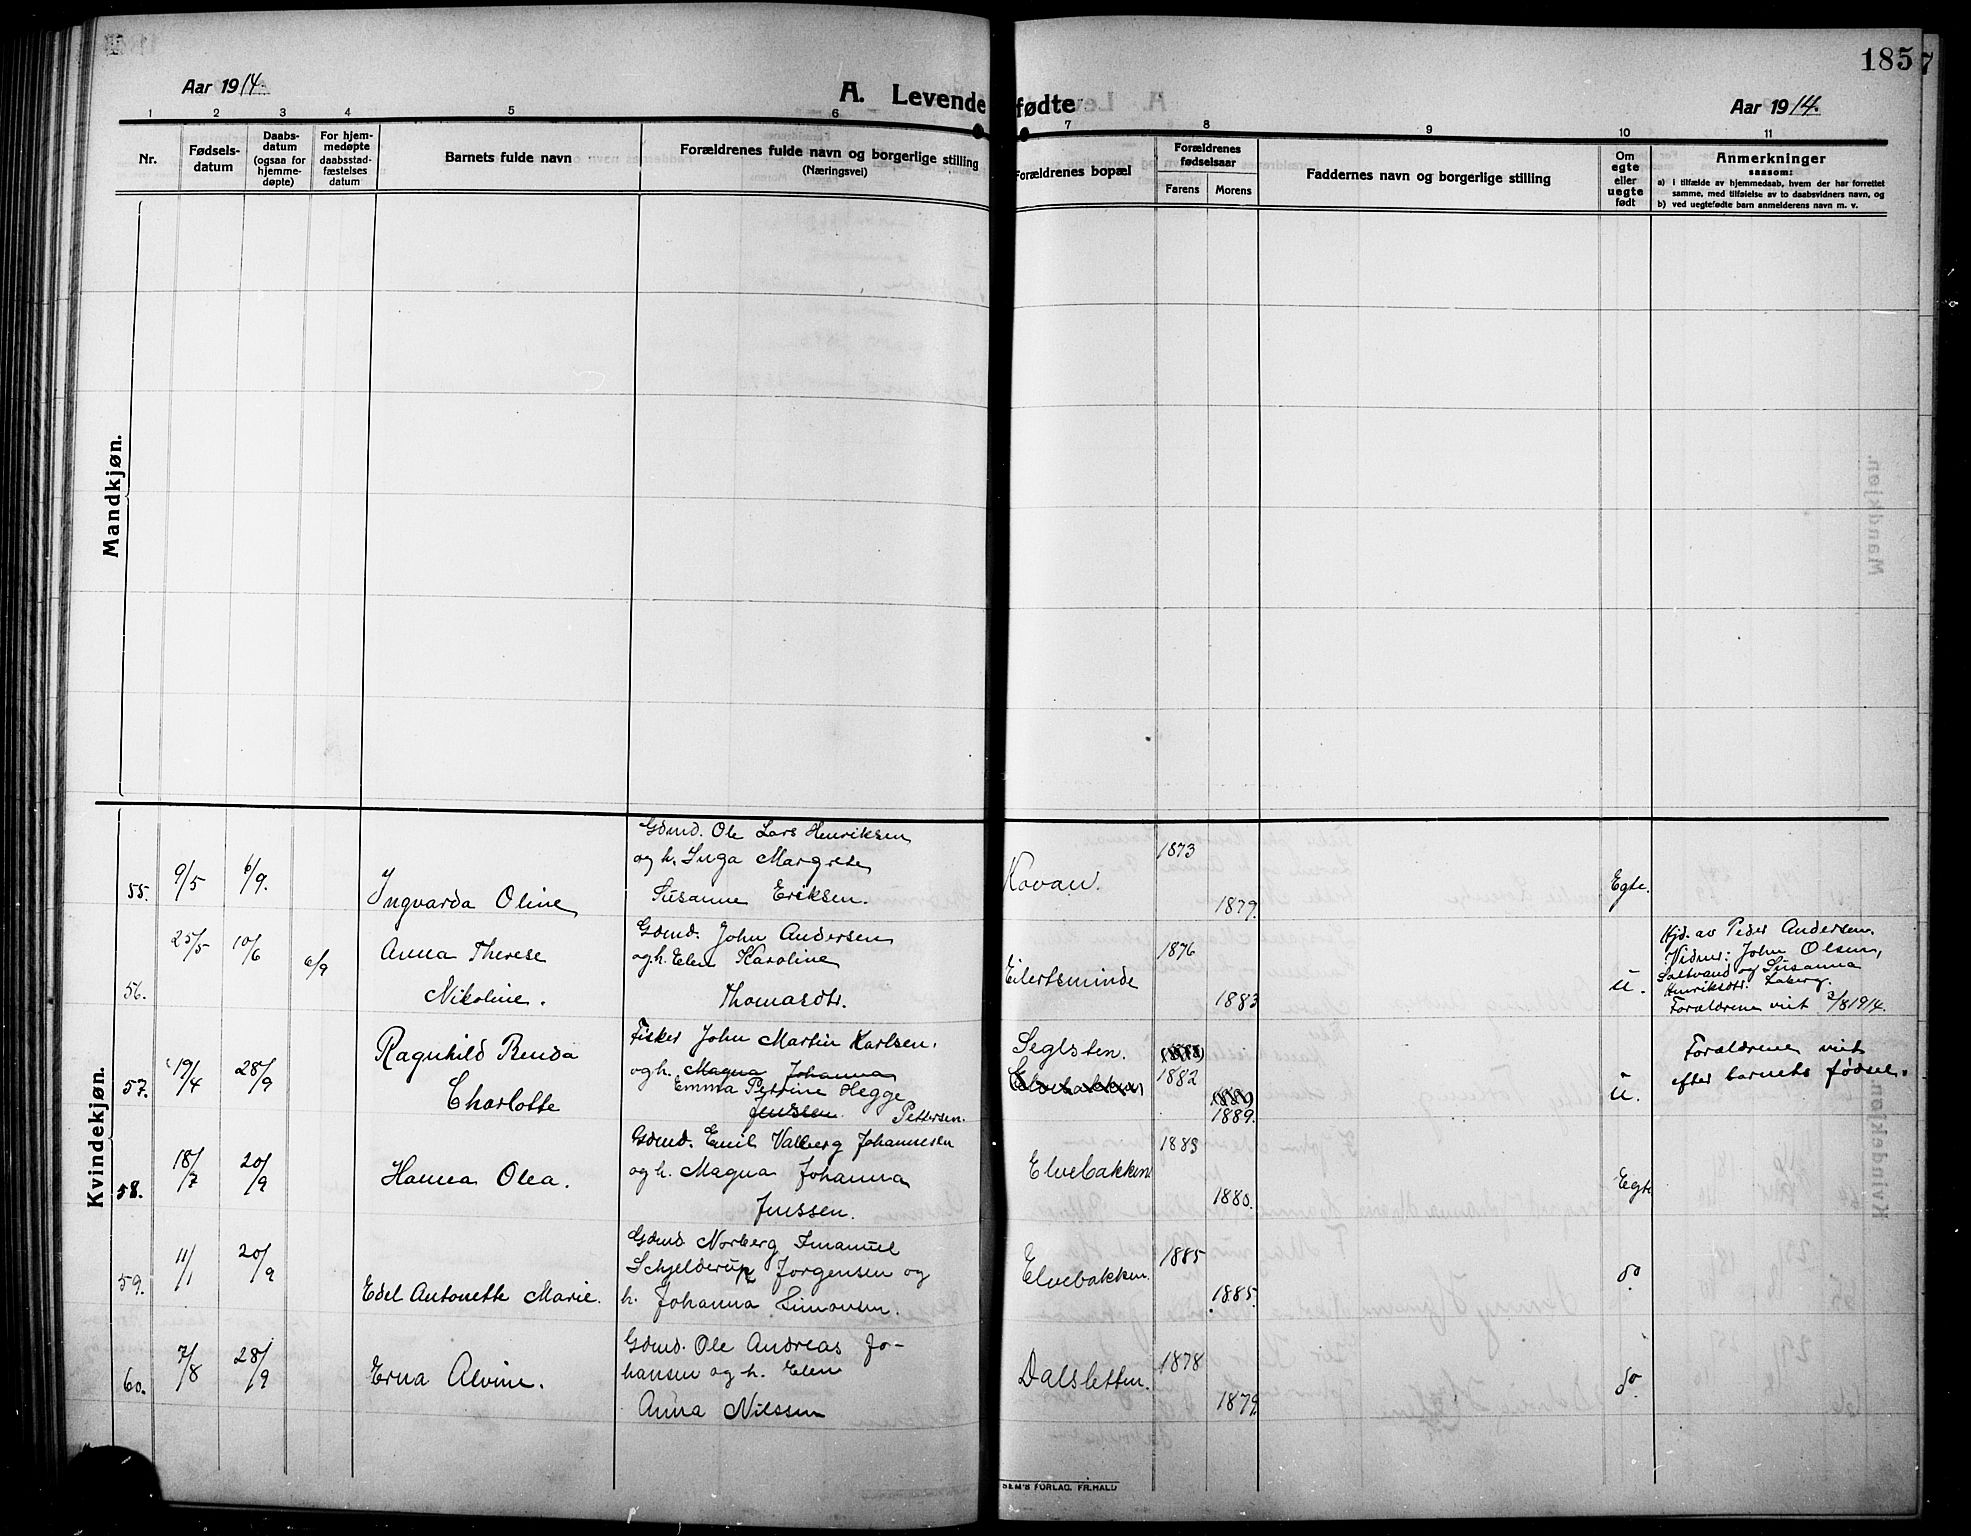 185
7
Aar 1914.
A. Levende fødte
Aar 1914.
1 2 3 4 5 6 7 8 9 10 11
Nr.
Fødsels-
datum
Daabs-
datum
(ogsaa for
hjemme-
døpte)
For hjem-
medøpte
daabsstad-
fæstelses
datum
Barnets fulde navn
Forældrenes fulde navn og borgerlige stilling
(Næringsvei)
Forældrenes bopæl
Forældrenes
fødselsaar
Farens
Morens
Faddernes navn og borgerlige stilling
Om
egte
eller
uegte
født
Anmerkninger
saasom:
a) i tilfælde av hjemmedaab, hvem der har forrettet
samme, med tilføielse av to daabsvidners navn, og
b) ved uegtefødte barn anmelderens navn m. v.
Mandkjøn.
Kvindekjøn.
55.
9/5
6/9.
Ingvarda Oline
Gdmd. Ole Lars Henriksen
og h. Inga Margrete
Susanne Eriksen.
Kovan.
1873
1879.
Egte.
56.
25/5
10/6
6/9
Anna Therese
Nikoline.
Gdmd. John Andersen
og h. Elen Karoline
Thomasdtr.
Eilertsminde
1876
1883
u.
Hjd. av Peder Andersen.
Vidner: John Olsen,
Saltvand og Susanna
Henriksdtr. Laberg.
Forældrene viet 2/8 1914.
57.
19/4
28/9
Ragnhild Benda
Charlotte
Fisker John Martin Karlsen.
og h. Magna Johanna
Emma Petrine Hegge
Jenssen. Pettersen.
Seglsten.
Elvebakken
1882
1889.
u.
Forældrene viet
efter barnets fødsel.
58.
18/7
20/9
Hanna Olea.
Gdmd. Emil Valberg Johannesen
og h. Magna Johanna
Jenssen.
Elvebakken
1883
1880.
Egte
59.
11/1
20/9
Edel Antonette Marie.
Gdmd. Norberg Imanuel
Schjelderup Jørgensen og
h. Johanna Simonsen.
Elvebakken.
1885
1885.
do
60.
7/8
28/9
Erna Alvine.
Gdmd. Ole Andreas Jo-
hansen og h. Elen
Anna Nilssen
Dalsletten.
1878
1879.
do
SEM'S FORLAG. FR.HALD